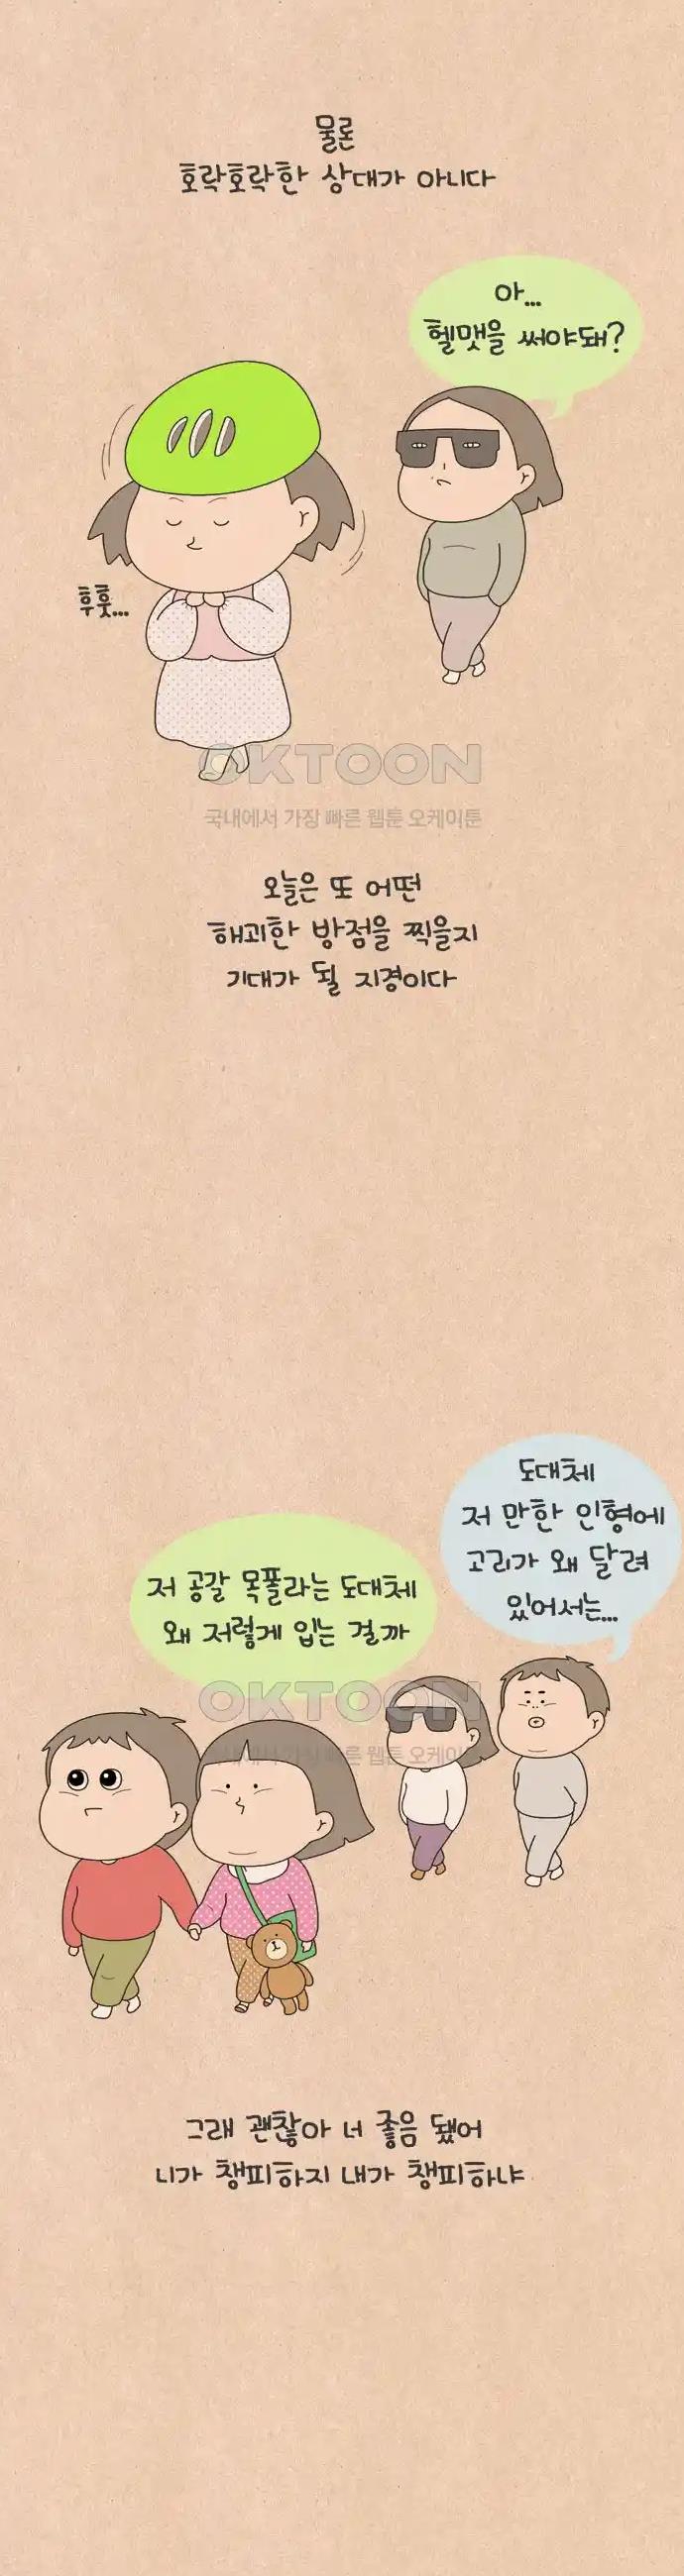 물론
호락호락한 상대가 아니다
아...
헬맷을 써야돼?
후훗...
OKTOON
국내에서 가장 빠른 웹툰 오케이툰
오늘은 또 어떤
해괴한 방점을 찍을지
기대가 될 지경이다
도대체
저 만한 인형에
고리가 왜 달려
있어서는...
저 공갈 목폴라는 도대체
왜 저렇게 입는 걸까
OKTOON
국내에서 가장 빠른 웹툰 오케이
그래 괜찮아 너 좋음 됐어
니가 챙피하지 내가 챙피하냐